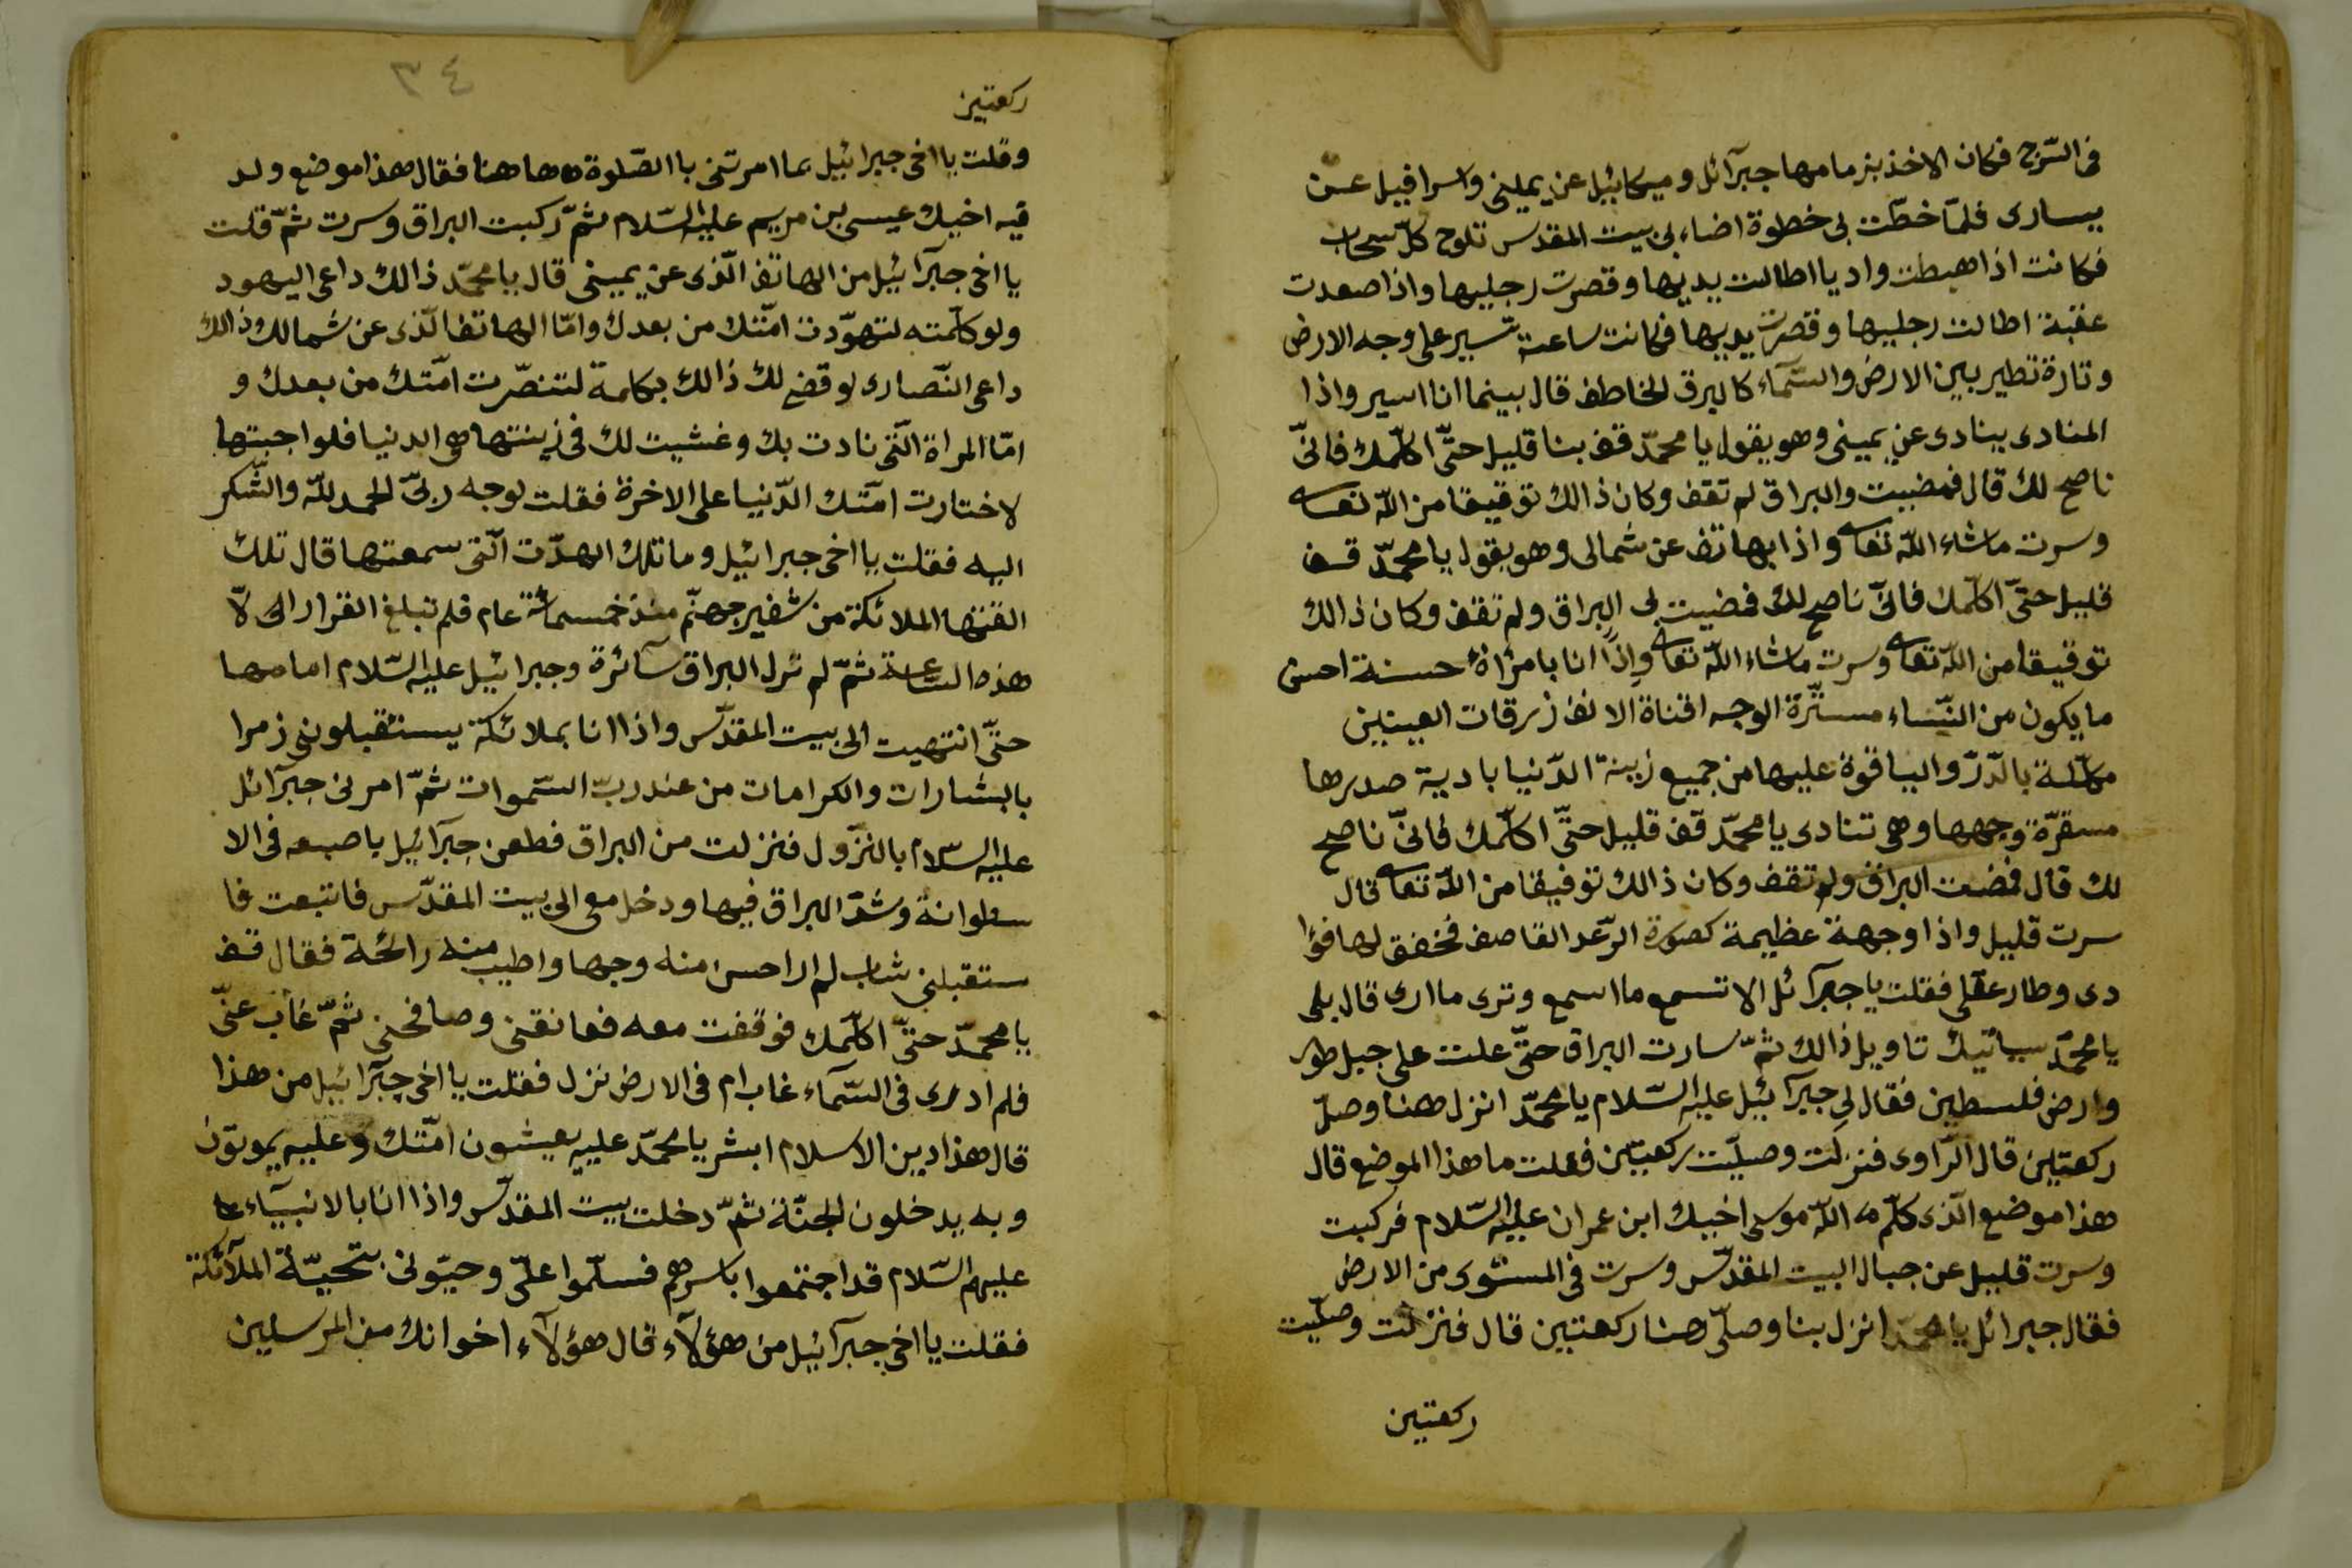 فى السّرج فكان الاخذ بزمامها جبرآئل وميكائيل عن يمينى واسرافيل عن
يسارى فلمّا خطّت بى خطوة اضاء لى بيت المقدس تلوح كلّ سحاب
فكانت اذا هبطت واديا اطالت يديها وقصرت رجليها واذا صعدت
عقبة اطالت رجليها وقصرت يديها فكانت ساعة تسير على وجه الارض
وتارة تطير بين الارض والسّمآء كالبرق الخاطف قال بينما انا اسير واذا
المنادى ينادى عن يمينى وهو يقول يا محمّد قف بنا قليل حتّى اكلّمك فانّى
ناصح لك قال فمضيت والبراق لم تقف وكان ذالك توقيقا من اللّه تعا
وسرت ماشاء اللّه تعا واذا بهاتف عن شمالى وهو يقول يا محمّد قف
قليل حتّى اكلّمك فانّى ناصح لك فمضيت بى البراق ولم تقف وكان ذالك
توقيقا من اللّه تعا وسرت ماشاء اللّه تعا وإذاً انا بامرأة حسنة احسن
ما يكون من النّساء مستّرة الوجه اقناة الانف زرقات العينين
مكلّلة بالدّرّ والياقوة عليها من جميع زينة الدّنيا بادية صدرها
مسقرّة وجهها وهى تنادى يا محمّد قف قليل حتّى اكلّمك فانّى ناصح
لك قال فمضت البراق ولم تقف وكان ذالك توفيقا من اللّه تعا قال
سرت قليل واذا وجهة عظيمة كصورة الرّعد القاصف فخفق لها فوا
دى وطار عقلى فقلت يا جبرآئل الا تسمع ما اسمع وترى ما ارى قال بلى
يا محمّد سيأتيك تاويل ذالك ثمّ سارت البراق حتّى علت على جبل طور
وارض فلسطين فقال لى جبرآئيل عليه السّلام يا محمّد انزل هنا وصلّ
ركعتين قال الرّاوى فنزلت وصليّت ركعتين فقلت ما هذا الموضع قال
هذا موضع الّذى كلّم اللّه موسى اخيك ابن عمران عليه السّلام فركبت
وسرت قليل عن جبال البيت المقدّس وسرت فى المستوى من الارض
فقال جبرائل يا محمّد انزل بنا وصلّى هنا ركعتين قال فنزلت وصلّيت
ركعتين
٣٤
ركعتين
وقلت يا اخى جبرائيل بما امرتنى با الصّلوة هاهنا فقال هذا موضع ولد
فيه اخيك عيسى بن مريم عليه السّلام ثمّ ركبت البراق وسرت ثمّ قلت
يا اخى جبرآئيل من الهاتف الّذى عن يمينى قال يا محمّد ذالك داعى اليهود
ولو كلّمته لتهوّدت امّتك من بعدك وامّا الهاتف الّذى عن شمالك ذالك
داعى النّصارى لو قضى لك ذالك بكلمة لتنصّرت امّتك من بعدك و
امّا المراة الّتى نادت بك وغشيت لك فى زينتها هى الدنيا فلوا جبتها
لاختارت امّتك الدّنيا على الاخرة فقلت لوجه ربّى الحمد للّه والشّكر
اليه فقلت يا اخى جبرائيل وما تلك الهدّت الّتى سمعتها قال تلك
القتها الملائكة من شفير جهنّم منذ خمسمائة عام فلم تبلغ القرار الى لا
هذه الساعة ثمّ لم تزل البراق سآئرة وجبرائيل عليه السّلام امامها
حتّى انتهيت الى بيت المقدّس واذا انا بملائكة يستقبلوننى زمرا
بالبشارات والكرامات من عند ربّ السّموات ثمّ امرنى جبرآئل
عليه السّلام بالنزول فنزلت من البراق فطعن جبرآئيل باصبعه فى الا
سطوانة وشدّ البراق فيها ودخل معى الى بيت المقدّس فاتبعت فا
ستقبلنى شاب لم ار احسن منه وجها واطيب منه رائحة فقال قف
يا محمّد حتّى اكلّمك فوقفت معه فعانقنى وصافحنى ثمّ غاب عنّى
فلم ادرى فى السّمآء غاب ام فى الارض نزل فقلت يا اخى جبرآئيل من هذا
قال هذا دين الاسلام ابشر يا محمّد عليه يعيشون امّتك وعليه يموتون
وبه يدخلون الجنّة ثمّ دخلت بيت المقدّس واذا انا بالانبيآء
عليهم السّلام قد اجتمعوا باسرهم فسلّموا علىّ وحيّونى بتحيّة الملآئكة
فقلت يا اخى جبرآئيل من هؤلآء قال هؤلآء اخوانك من المرسلين